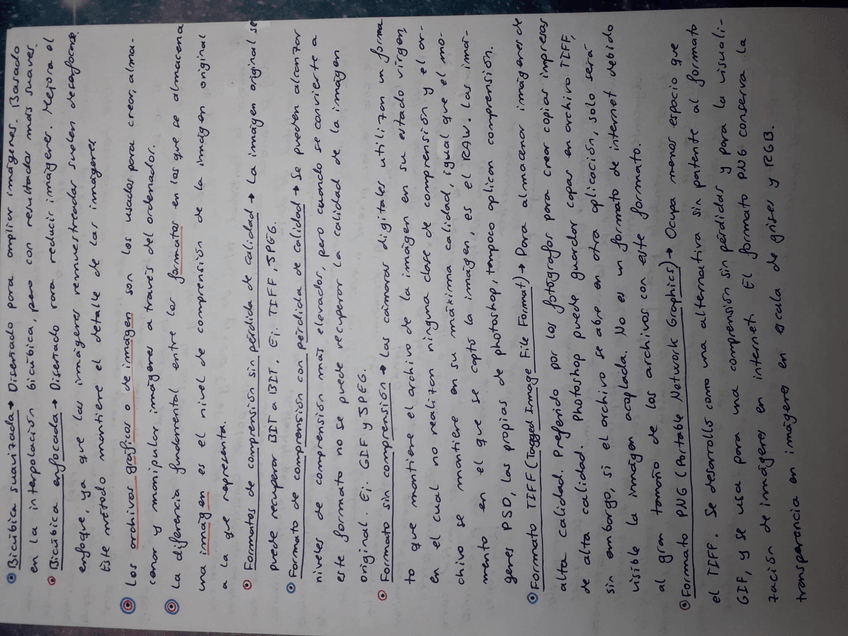 Bicúbica suavizada → Diseñado para ampliar imágenes. Basado
en la interpolación bicúbica, pero con resultados más suaves.
Bicúbica enfocada → Diseñado para reducir imágenes. Mejora el
enfoque, ya que las imágenes remuestreadas suelen desenfocarse.
Este método mantiene el detalle de las imágenes
Los archivos gráficos o de imagen son los usados para crear, alma-
cenar y manipular imágenes a través del ordenador.
La diferencia fundamental entre los formatos en los que se almacena
una imagen es el nivel de compresión de la imagen original
a la que representa.
Formatos de compresión sin pérdida de calidad → La imagen original se
puede recuperar BIT a BIT. Ej: TIFF, JPEG.
Formato de compresión con pérdida de calidad → Se pueden alcanzar
niveles de compresión más elevados, pero cuando se convierte a
este formato no se puede recuperar la calidad de la imagen
original. Ej: GIF y JPEG.
Formato sin compresión → Las cámaras digitales utilizan un forma
to que mantiene el archivo de la imagen en su estado virgen,
en el cual no realizan ninguna clase de compresión y el ar-
chivo se mantiene en su máxima calidad, igual que el mo-
mento en el que se captó la imagen, es el RAW. Las imá-
genes PSD, las propias de photoshop, tampoco aplican compresión.
Formato TIFF (Tagged Image File Format) → Para almacenar imágenes de
alta calidad. Preferido por los fotógrafos para crear copias impresas
de alta calidad. Photoshop puede guardar capas en archivo TIFF,
sin embargo, si el archivo se abre en otra aplicación, solo será
visible la imagen acoplada. No es un formato de internet debido
al gran tamaño de los archivos con este formato.
Formato PNG (Portable Network Graphics) → Ocupa menos espacio que
el TIFF. Se desarrolló como una alternativa sin patente al formato
GIF, y se usa para una compresión sin pérdidas y para la visuali-
zación de imágenes en internet. El formato PNG conserva la
transparencia en imágenes en escala de grises y RGB.